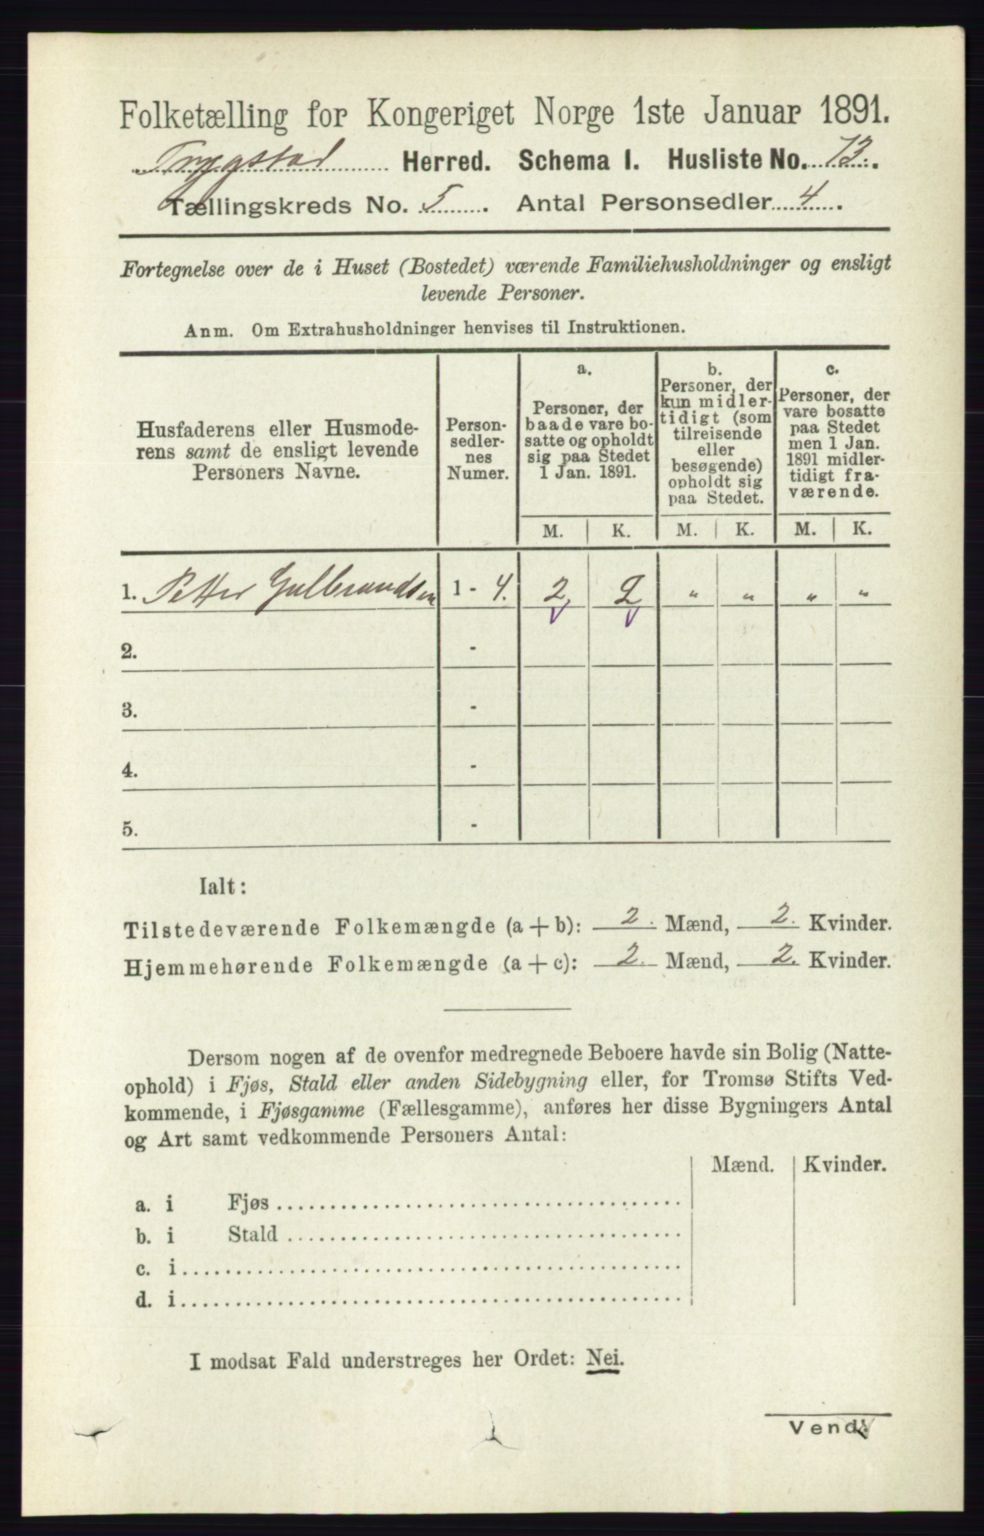 Folketælling for Kongeriget Norge 1ste Januar 1891.
Trygstad Herred. Schema I. Husliste No. 13.
Tællingskreds No. 5. Antal Personsedler 4.
Fortegnelse over de i Huset (Bostedet) værende Familiehusholdninger og ensligt
levende Personer.
Anm. Om Extrahusholdninger henvises til Instruktionen.
Husfaderens eller Husmode-
rens samt de ensligt levende
Personers Navne.
Person-
sedler-
nes
Numer.
a.
Personer, der
baade vare bo-
satte og opholdt
sig paa Stedet
1 Jan. 1891.
b.
Personer, der
kun midler-
tidigt (som
tilreisende
eller
besøgende)
opholdt sig
paa Stedet.
c.
Personer, der
vare bosatte
paa Stedet
men 1 Jan.
1891 midler-
tidigt fra-
værende.
M. K. M. K. M. K.
1. Petter Gulbrandsen 1 - 4. 2 2 " " " "
2. -
3. -
4. -
5. -
Ialt:
Tilstedeværende Folkemængde (a + b): 2. Mænd, 2. Kvinder.
Hjemmehørende Folkemængde (a + c): 2. Mænd, 2. Kvinder.
Dersom nogen af de ovenfor medregnede Beboere havde sin Bolig (Natte-
ophold) i Fjøs, Stald eller anden Sidebygning eller, for Tromsø Stifts Ved-
kommende, i Fjøsgamme (Fællesgamme), anføres her disse Bygningers Antal
og Art samt vedkommende Personers Antal:
Mænd. Kvinder.
a. i Fjøs
b. i Stald
c. i
d. i
I modsat Fald understreges her Ordet: Nei.
Vend!